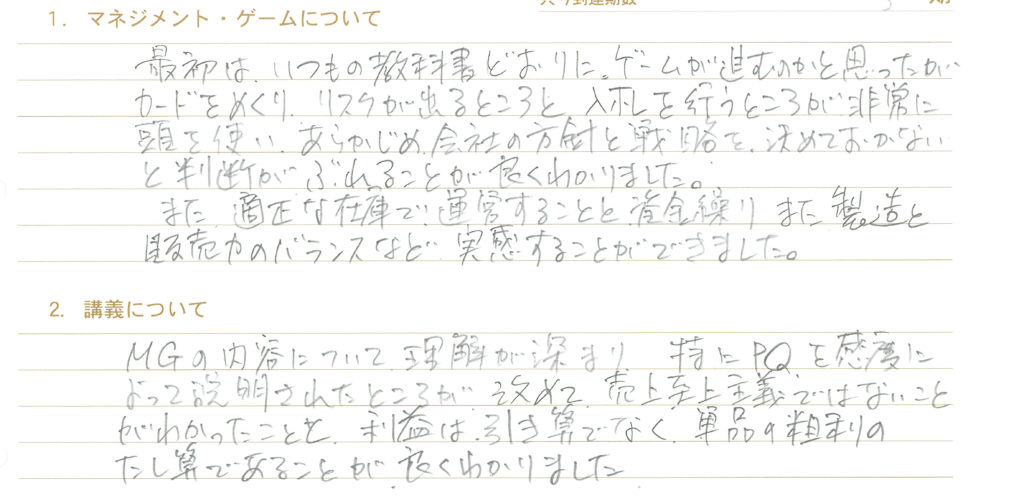 1. マネジメント・ゲームについて
最初は、いつもの教科書どおりに。ゲームが進むのかと思ったが
カードをめくり、リスクが出るところと、入札を行うところが非常に
頭を使い、あらかじめ、会社の方針と戦略を、決めておかない
と判断がぶれることが良くわかりました。
また、適正な在庫で、運営することと、資金繰り、また製造と
販売力のバランスなど、実感することができました。
2. 講義について
MGの内容について、理解が深まり、特にPQを感度に
よって説明されたところが、改めて、売上至上主義ではないこと
がわかったことと、利益は、引き算でなく、単品の粗利の
たし算であることが良くわかりました